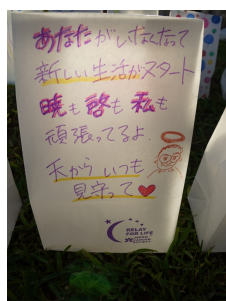 あなたがいなくなって
新しい生活がスタート
暁も啓も私も
頑張ってるよ
天からいつも
見守って
RELAY
FOR LIFE